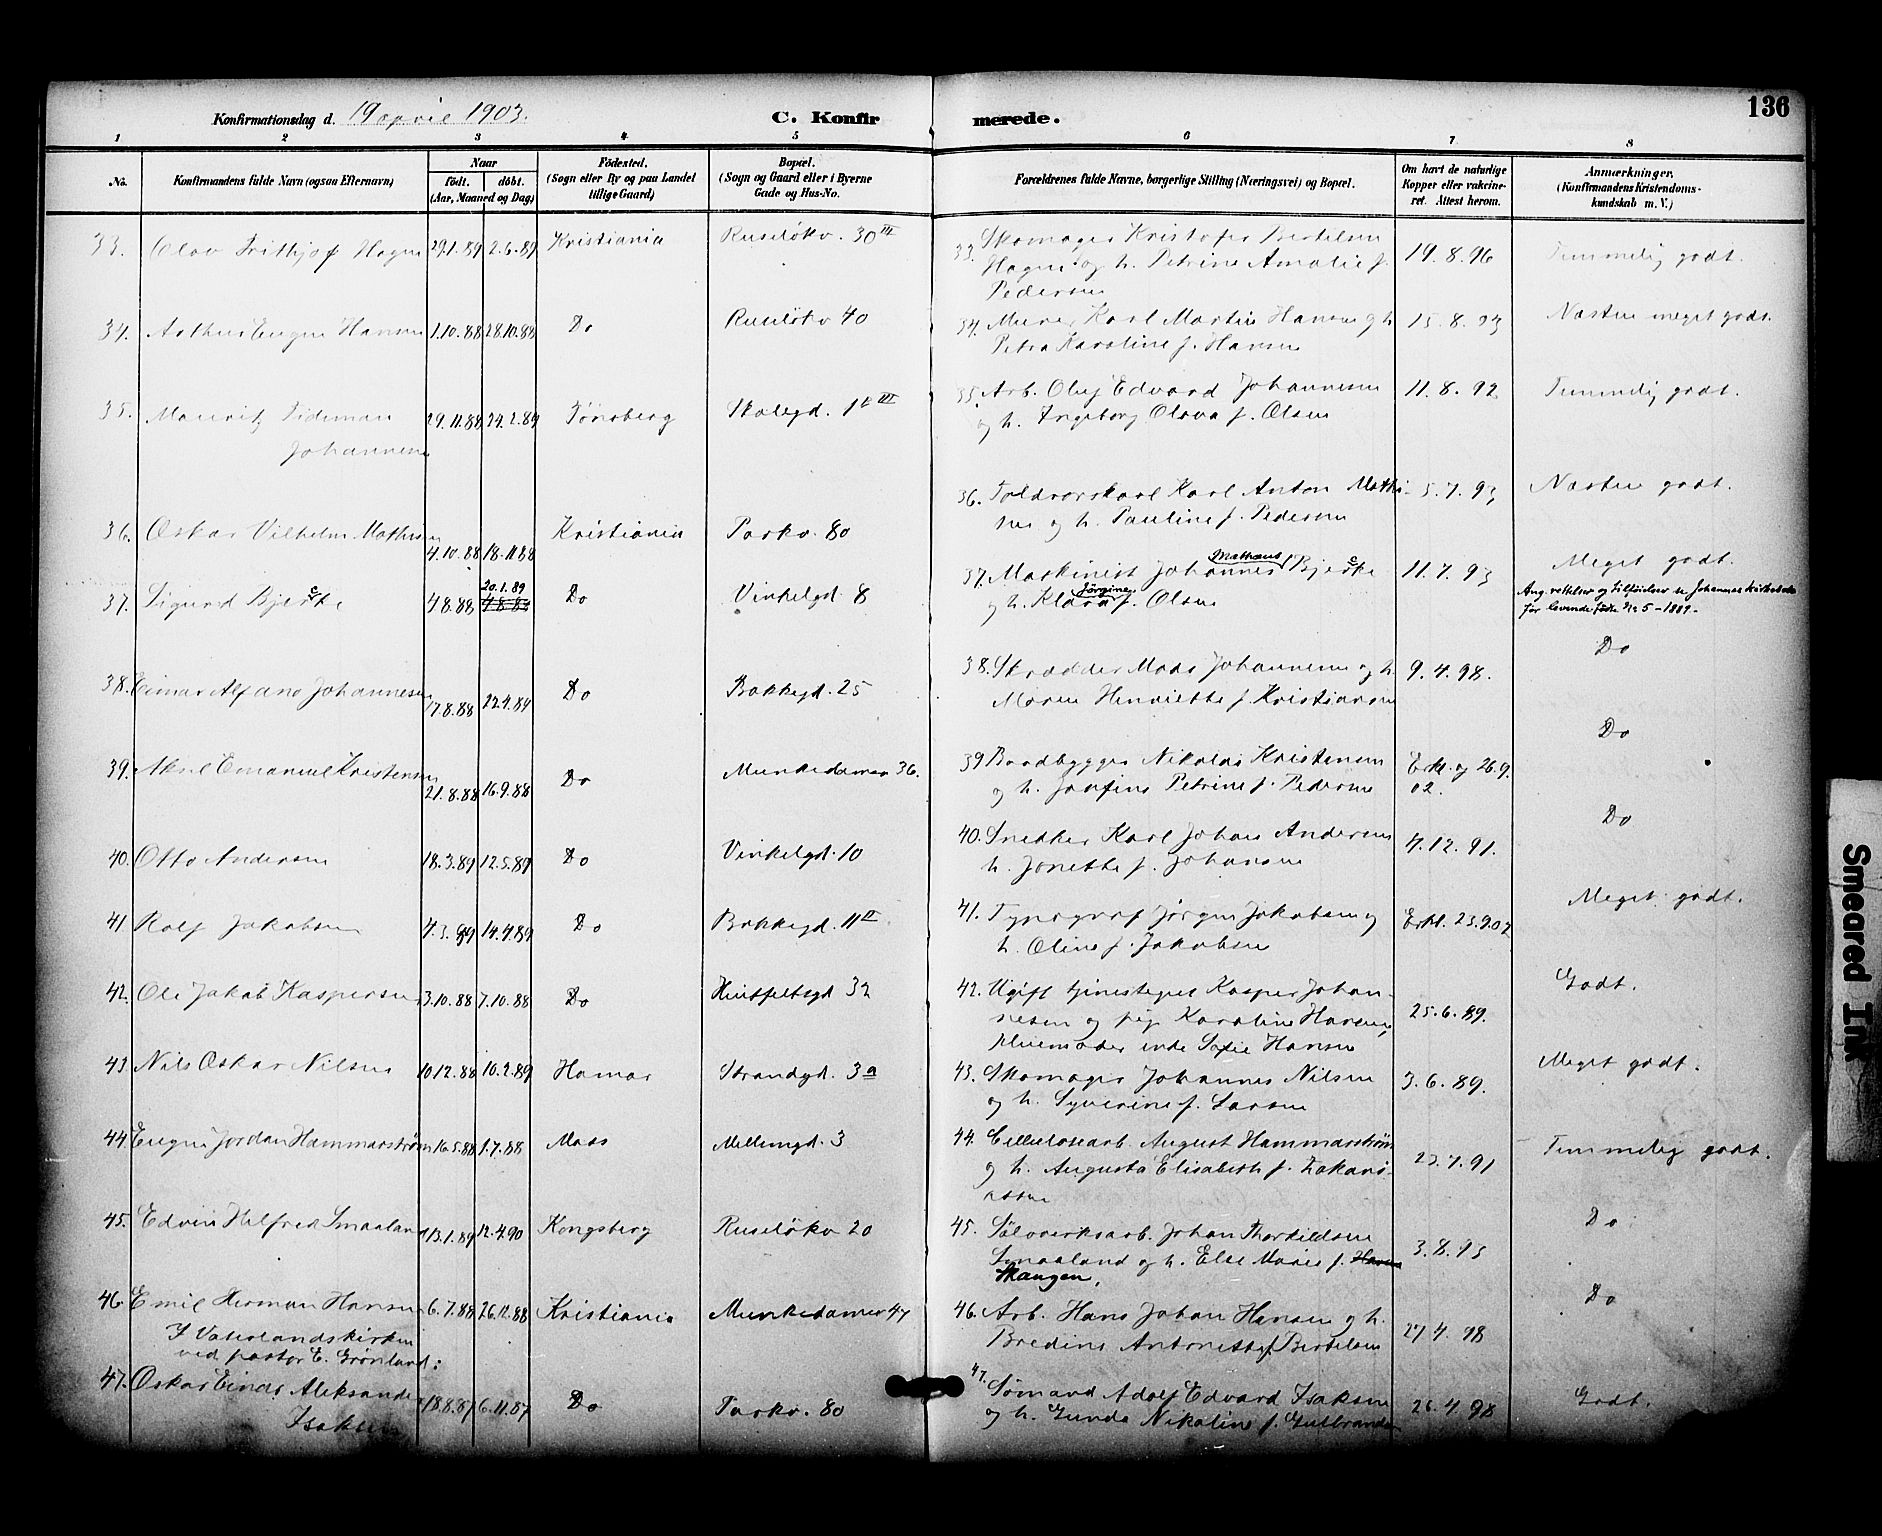 136
Konfirmationsdag d. 19 april 1903.
C. Konfirmerede.
1 2 3 4 5 6 7 8
No. Konfirmandens fulde Navn (ogsaa Efternavn)
Naar
født. døbt.
(Aar, Maaned og Dag)
Fødested.
(Sogn eller By og paa Landet
tillige Gaard)
Bopæl.
(Sogn og Gaard eller i Byerne
Gade og Hus-No.
Forældrenes fulde Navne, borgerlige Stilling (Næringsvei) og Bopæl.
Om havt de naturlige
Kopper eller vakcine-
ret. Attest herom.
Anmærkninger.
(Konfirmandens Kristendoms-
kundskab m. V.)
33. Olav Frithjof Hagen 29.1.89 2.6.89 Kristiania Ruseløkv. 30 III
33. Skomager Kristofer Bertelsen
Hagen og h. Petrine Amalie f.
Pedersen
19.8.96 Temmelig godt.
34. Arthur Eugen Hansen 1.10.88 28.10.88 Do Ruseløkv 40
34. Murer Karl Martin Hansen og h
Petra Karoline f. Hansen
15.8.93 Næsten meget godt.
35. Mauritz Tideman
Johannesen
29.11.88 24.2.89 Tönsberg Skolegd. 1 b III
35. Arb. Oluf Edvard Johannesen
og h. Ingeborg Olava f. Olsen
11.8.92 Temmelig godt.
36. Oskar Vilhelm Mathisen 4.10.88 18.11.88 Kristiania Parkv. 80
36. Toldvorskarl Karl Anton Mathi-
sen og h. Pauline f. Pedersen
5.7.93 Næsten godt.
37. Sigurd Bjercke 4.8.88 20.1.89 Do Vinkelgd. 8
37. Maskinist Johannes Mathæus Bjercke
og h. Klara Jörgine f. Olsen
11.7.93 Meget godt.
Ang. rettelser og tilföielser se Johannes kirkebok
for levende födte No 5 - 1889.
38. Einar Alfano Johannesen 17.8.88 22.4.89 Do Bakkegd. 25
38. Skrædder Mads Johannesen og h.
Maren Henriette f. Kristiansen
9.4.98. Do
39. Aksel Emanuel Kristensen 21.8.88 16.9.88 Do Munkedamsv 36.
39 Baadbygger Nikolai Kristensen
og h. Josefine Petrine f. Pedersen
Erkl. og 26.9.
02.
Do
40. Otto Andersen 18.3.89 12.5.89 Do Vinkelgd. 10
40. Snekker Karl Johan Andersen
h. Jonette f. Johansen
4.12.91. Do
41 Rolf Jakobsen 4.3.89 14.4.89 Do Bakkegd. 11 II
41. Typograf Jörgen Jakobsen og
h. Oline f. Jakobsen
Erkl. 23.9.02 Meget godt.
42. Ole Jakob Kaspersen 3.10.88 7.10.88 Do Huitfeltsgd 32
42. Ugift tjenestegut Kasper Johan-
nesen og pige Karoline Hansen,
pleiemoder enke Sofie Hansen
25.6.89. Godt.
43 Nils Oskar Nilsen 10.12.88 10.2.89 Hamar Strandgd. 3a
43. Skomager Johannes Nilsen
og h. Syverine f. Larsen
3.6.89. Meget godt.
44 Eugen Jordan Hammarström 16.5.88 1.7.88 Moss Mellemgd. 3
44. Cellulosearb. August Hammarström
og h. Augusta Elisabeth f. Zakari-
assen
23.7.91 Temmelig godt.
45. Edvin Hilfred Smaaland 13.1.89 12.4.90 Kongsberg Ruseløkv 20
45. Sölvverksarb. Johan Thorkildsen
Smaaland og h. Else Marie f. Hansen
Skangen,
3.8.93 Do
46. Emil Herman Hansen 6.7.88 26.12.88 Kristiania Munkedamsv 47
I Vaterlandskirken
ved pastor E. Grönland:
46. Arb. Hans Johan Hansen og h.
Bredine Antonette f Bertelsen
27 4. 98 Do
47. Oskar Einar Aleksander
Isaksen
18.8.87 6.11.87 Do Parkv. 80
47. Sömand Adolf Edvard Isaksen
og h. Gunda Nikoline f. Gulbrandsen
26.4.98 Godt.
Smeared Ink